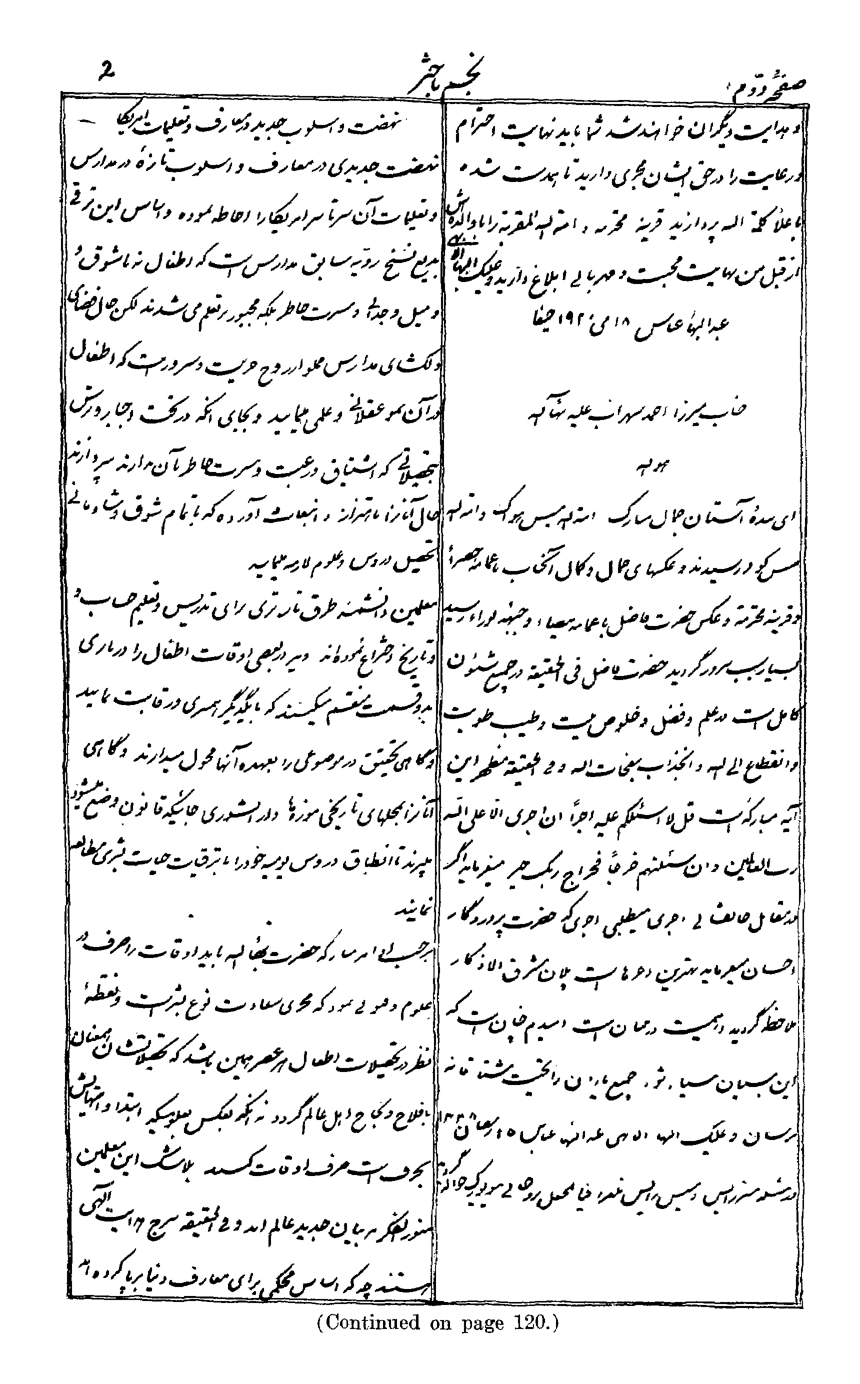 صفحهٔ دوّم
نجم باختر
2
و هدایت دیگران خواهند شد شما باید نهایت احترام
و رعایت را در حق ایشان مجری دارید تا همدست شده
باعلاء کلمة الله پردازید قرینه محترمه و امة الله المقربه را با والداش
از قبل من نهایت محبت و مهربانی ابلاغ دارید و علیک البهاء الابهی
عبدالبهاء عباس ۱۸ می حیفا
جناب میرزا احمد سهراب علیه بهآء الله
هو الله
ای بندهٔ آستان جمال مبارک امة الله میس و امة الله
میس رسیدند و عکسهای جمال و کمال آنجناب با عمامه
و قرینه محترمه و عکس حضرت فاضل با عمامه بیضاء و جبههٔ نوراء رسید
بسیار سبب سرور گردید حضرت فاضل فی الحقیقه در جمیع شئون
کامل است در علم و فضل و خلوص نیت و طیب طویت
و انقطاع الی الله و انجذاب بنفحات الله و فی الحقیقه مظهر این
آیه مبارکه است قل لا اسئلکم علیه اجراً ان اجری الّا علی الله
رب العالمین و ان تسئلهم خرجاً فخراج ربک خیر میفرماید اگر
در مقابل اجری میطلبی اجری که حضرت پروردگار
احسان میفرماید بهترین اجرها است مشرق الاذکار
ملاحظه گردید در اهمیت است امیدم چنان است که
این بنیان بنیاد شود جمیع یاران را تحیت مشتاقانه
برسان و علیک البهاء الابهی عبدالبهاء عباس ۱۵ رمضان
محفل روحانی نیویورک
نهضت و اسلوب جدید در معارف و تعلیمات امریکا
نهضت جدیدی در معارف و اسلوب تازهٔ در مدارس
و تعلیمات آن سرتاسر امریکا را احاطه نموده و اساس این ترقی
بدیع نسخ رویّه سابق مدارس است که اطفال نه با شوق و
و میل وجدانی و مسرت خاطر بلکه مجبور بر تعلم می‌شدند لکن حال فضای
دلگشای مدارس مملو از روح حریت و سرور است که اطفال
در آن نمو عقلانی و علمی مینمایند و بجای آنکه درسخت و جا پرورش
بتحصیلاتی که اشتیاق و رغبت و مسرت خاطر بآن ندارند بپردازند
حال آنانرا باهتزاز و انبعاث آورده که با تمام شوق و شادمانی
تحصیل دروس و علوم لازمه مینمایند
معلمین دانشمند طرق تازه‌تری برای تدریس و تعلیم حساب و
و تاریخ اختراع نموده‌اند و نیز در بعضی اوقات اطفال را در بازی
بدو قسمت منقسم میکنند که با یکدیگر همسری و رقابت نمایند
و گاهی تحقیق در موضوعی را بعهده آنها محول میدارند و گاهی
آنانرا بمحلهای تاریخی موزه‌ها دارالشوری جائیکه قانون وضع میشود
میبرند تا انطباق دروس یومیه خود را با ترقیات حیات بشری مطالعه
نمایند
بر حسب امر مبارک حضرت بهآء الله باید اوقات را صرف در
علوم و فنونی نمود که مجری سعادت نوع بشر است و نقطهٔ
نظر در تحصیلات اطفال در عصر همین باشد که تحصیلاتشان
با فلاح و نجاح اهل عالم گردد نه آنکه بعکس بعلومیکه ابتدا و انتهایش
بحرف است صرف اوقات کنند بلاشک این معلمین
منور الفکر مربیان جدید عالم اند و فی الحقیقه سرج هدایت الهی
هستند چه که اساس محکمی برای معارف دنیا برپا کرده اند
(Continued on page 120.)